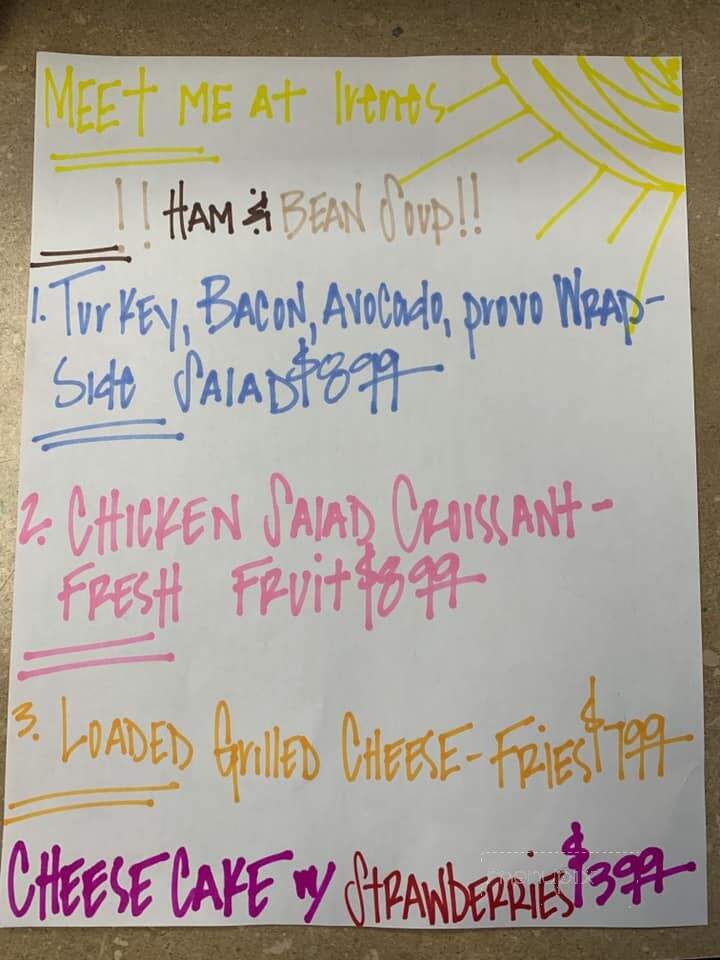 MEET ME AT Irenes
!! HAM & BEAN SOUP!!
1. TurKEY, BACON, AVOCado, provo WRAP-
Side SALAD $899
2. CHICKEN SALAD CROISSANT-
FRESH FRUIT $899
3. LOADED GrillED CHEESE-FRIES $799
CHEESE CAKE w/ STRAWBERRIES $399
menupix